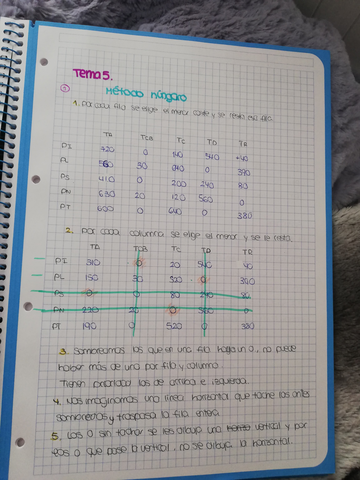 Tema 5.
① Método húngaro
1. Por cada fila se elige el menor coste y se resta esa fila.
TA TCB TC TD TR
PI 720 0 140 540 +40
PL 560 50 640 0 390
PS 410 0 200 240 80
PN 630 20 120 560 0
PT 600 0 640 0 380
2. Por cada columna se elige el menor y se le resta.
TA TCB TC TD TR
PI 310 0 20 540 40
PL 150 50 520 0 390
PS 0 0 80 240 80
PN 230 20 0 560 0
PT 190 0 520 0 380
3. Sombreamos los que en una fila haya un 0, no puede
haber más de uno por fila y columna.
Tienen prioridad los de arriba e izquierda.
4. Nos imaginamos una línea horizontal que tache los antes
sombreados y traspasa la fila entera.
5. Los 0 sin tachar se les dibuja una vertical y por
los 0 que pase la vertical, no se dibuja la horizontal.